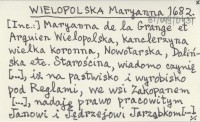 WIELOPOLSKA Maryanna 1682.
[Inc..] Maryanna de la Grange et
Arquien Wielopolska, kanclerzyna
wielka koronna, Nowotarska, Doliń-
ska etc. Starościna, wiadomo czynię
[...], iż na pastwisko i wyrobisko
pod Reglami, we wsi Zakopanem
[...], nadaję prawo pracowitym
Janowi i Jędrzejowi Jarząbkom[...]